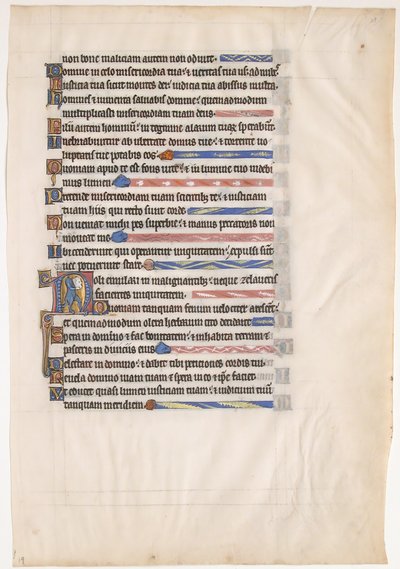 non bone maliciam autem non odivit.
Domine in celo misericordia tua: & veritas tua usq; ad nubes
Iusticia tua sicut montes dei: iudicia tua abissus multa.
Homines & iumenta salvabis domine: quemadmodum
multiplicasti misericordiam tuam deus
Filii autem hominum: in tegmine alarum tuarum sperabunt.
Inebriabuntur ab ubertate domus tue: & torrente vo
luptatis tue potabis eos.
Quoniam apud te est fons vite: & in lumine tuo videbi
mus lumen
Pretende misericordiam tuam scientibus te: & iusticiam
tuam hiis qui recto sunt corde
Non veniat michi pes superbie: & manus peccatoris non
moveat me
Ibi ceciderunt qui operantur iniquitatem: expulsi sunt
nec potuerunt stare
Noli emulari in malignantibus: neque zelaveris
facientes iniquitatem.
Quoniam tanquam fenum velociter arescent:
et quemadmodum olera herbarum cito decident
Spera in domino & fac bonitatem: & inhabita terram &
pasceris in diviciis eius
Delectare in domino: & dabit tibi peticiones cordis tui
Revela domino viam tuam & spera in eo & ipse faciet
Et educet quasi lumen iusticiam tuam: & iudicium tuum
tanquam meridiem
19